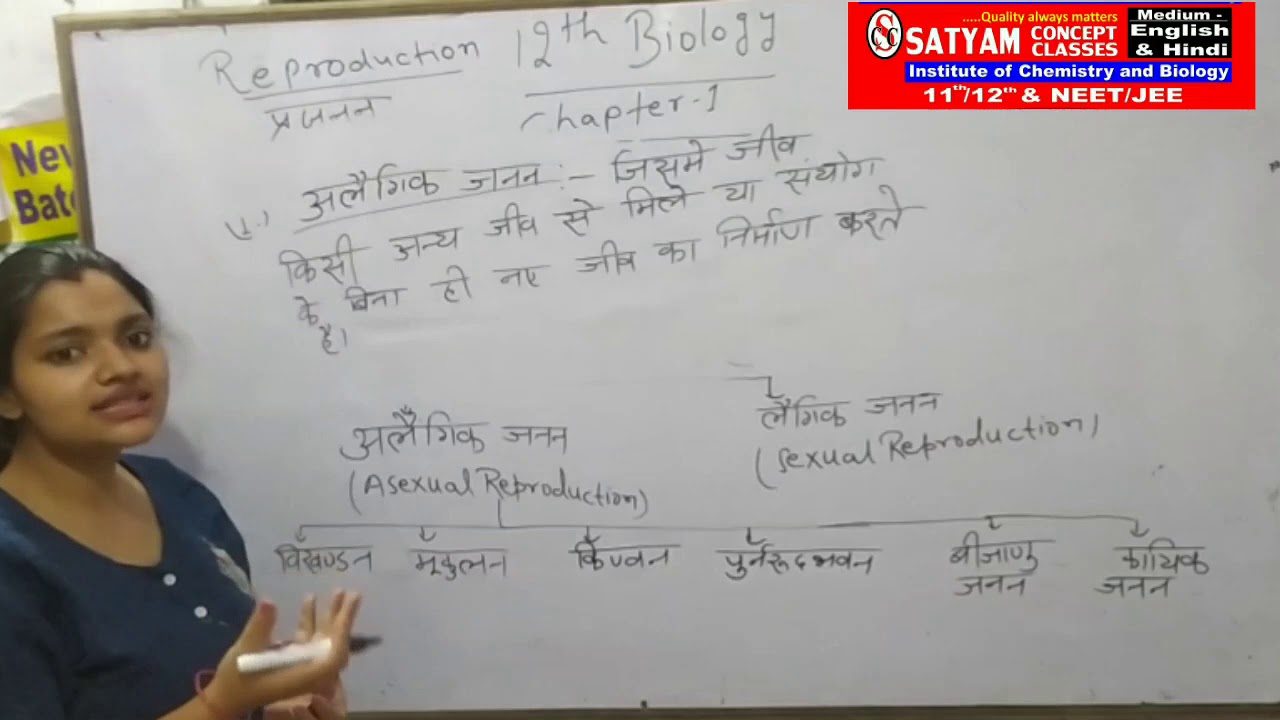 .....Quality always matters
SATYAM CONCEPT CLASSES
Medium - English & Hindi
Institute of Chemistry and Biology
11th/12th & NEET/JEE
New
Batc
Reproduction 12th Biology
प्रजनन Chapter-1
अलैगिक जनन :- जिसमे जीव
किसी अन्य जीव से मिले या संयोग
के बिना ही नए जीव का निर्माण करते
है।
अलैंगिक जनन
(Asexual Reproduction)
लैंगिक जनन
(Sexual Reproduction)
विखण्डन मूकुलन किण्वन पुर्नरूदभवन बीजाणु जनन कायिक जनन